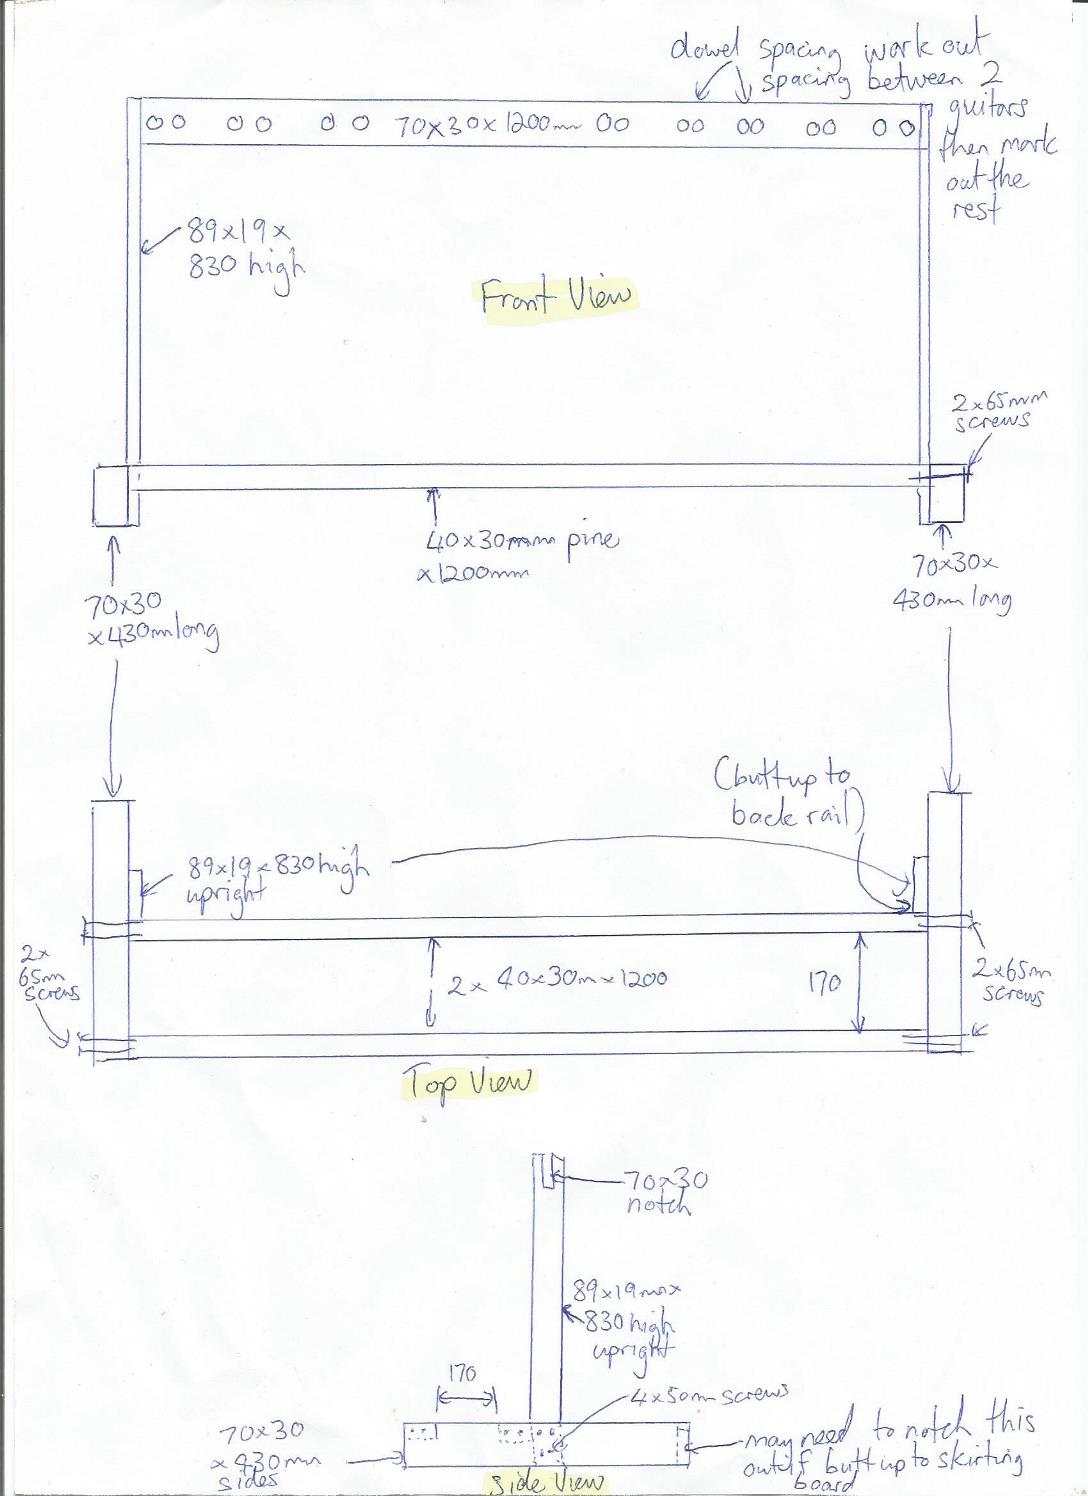 dowel spacing work out
spacing between 2
guitars
then mark
out the
rest
70x30x1200mm
89x19x
830 high
Front View
2x65mm
screws
40x30mm pine
x1200mm
70x30
x430mm long
70x30x
430mm long
(butt up to
back rail)
89x19x830 high
upright
2x
65mm
screws
2x 40x30mx1200
170
2x65m
screws
Top View
70x30
notch
89x19mmx
830 high
upright
170
4x50mm screws
70x30
x430mm
sides
may need to notch this
out if butt up to skirting
board
Side View